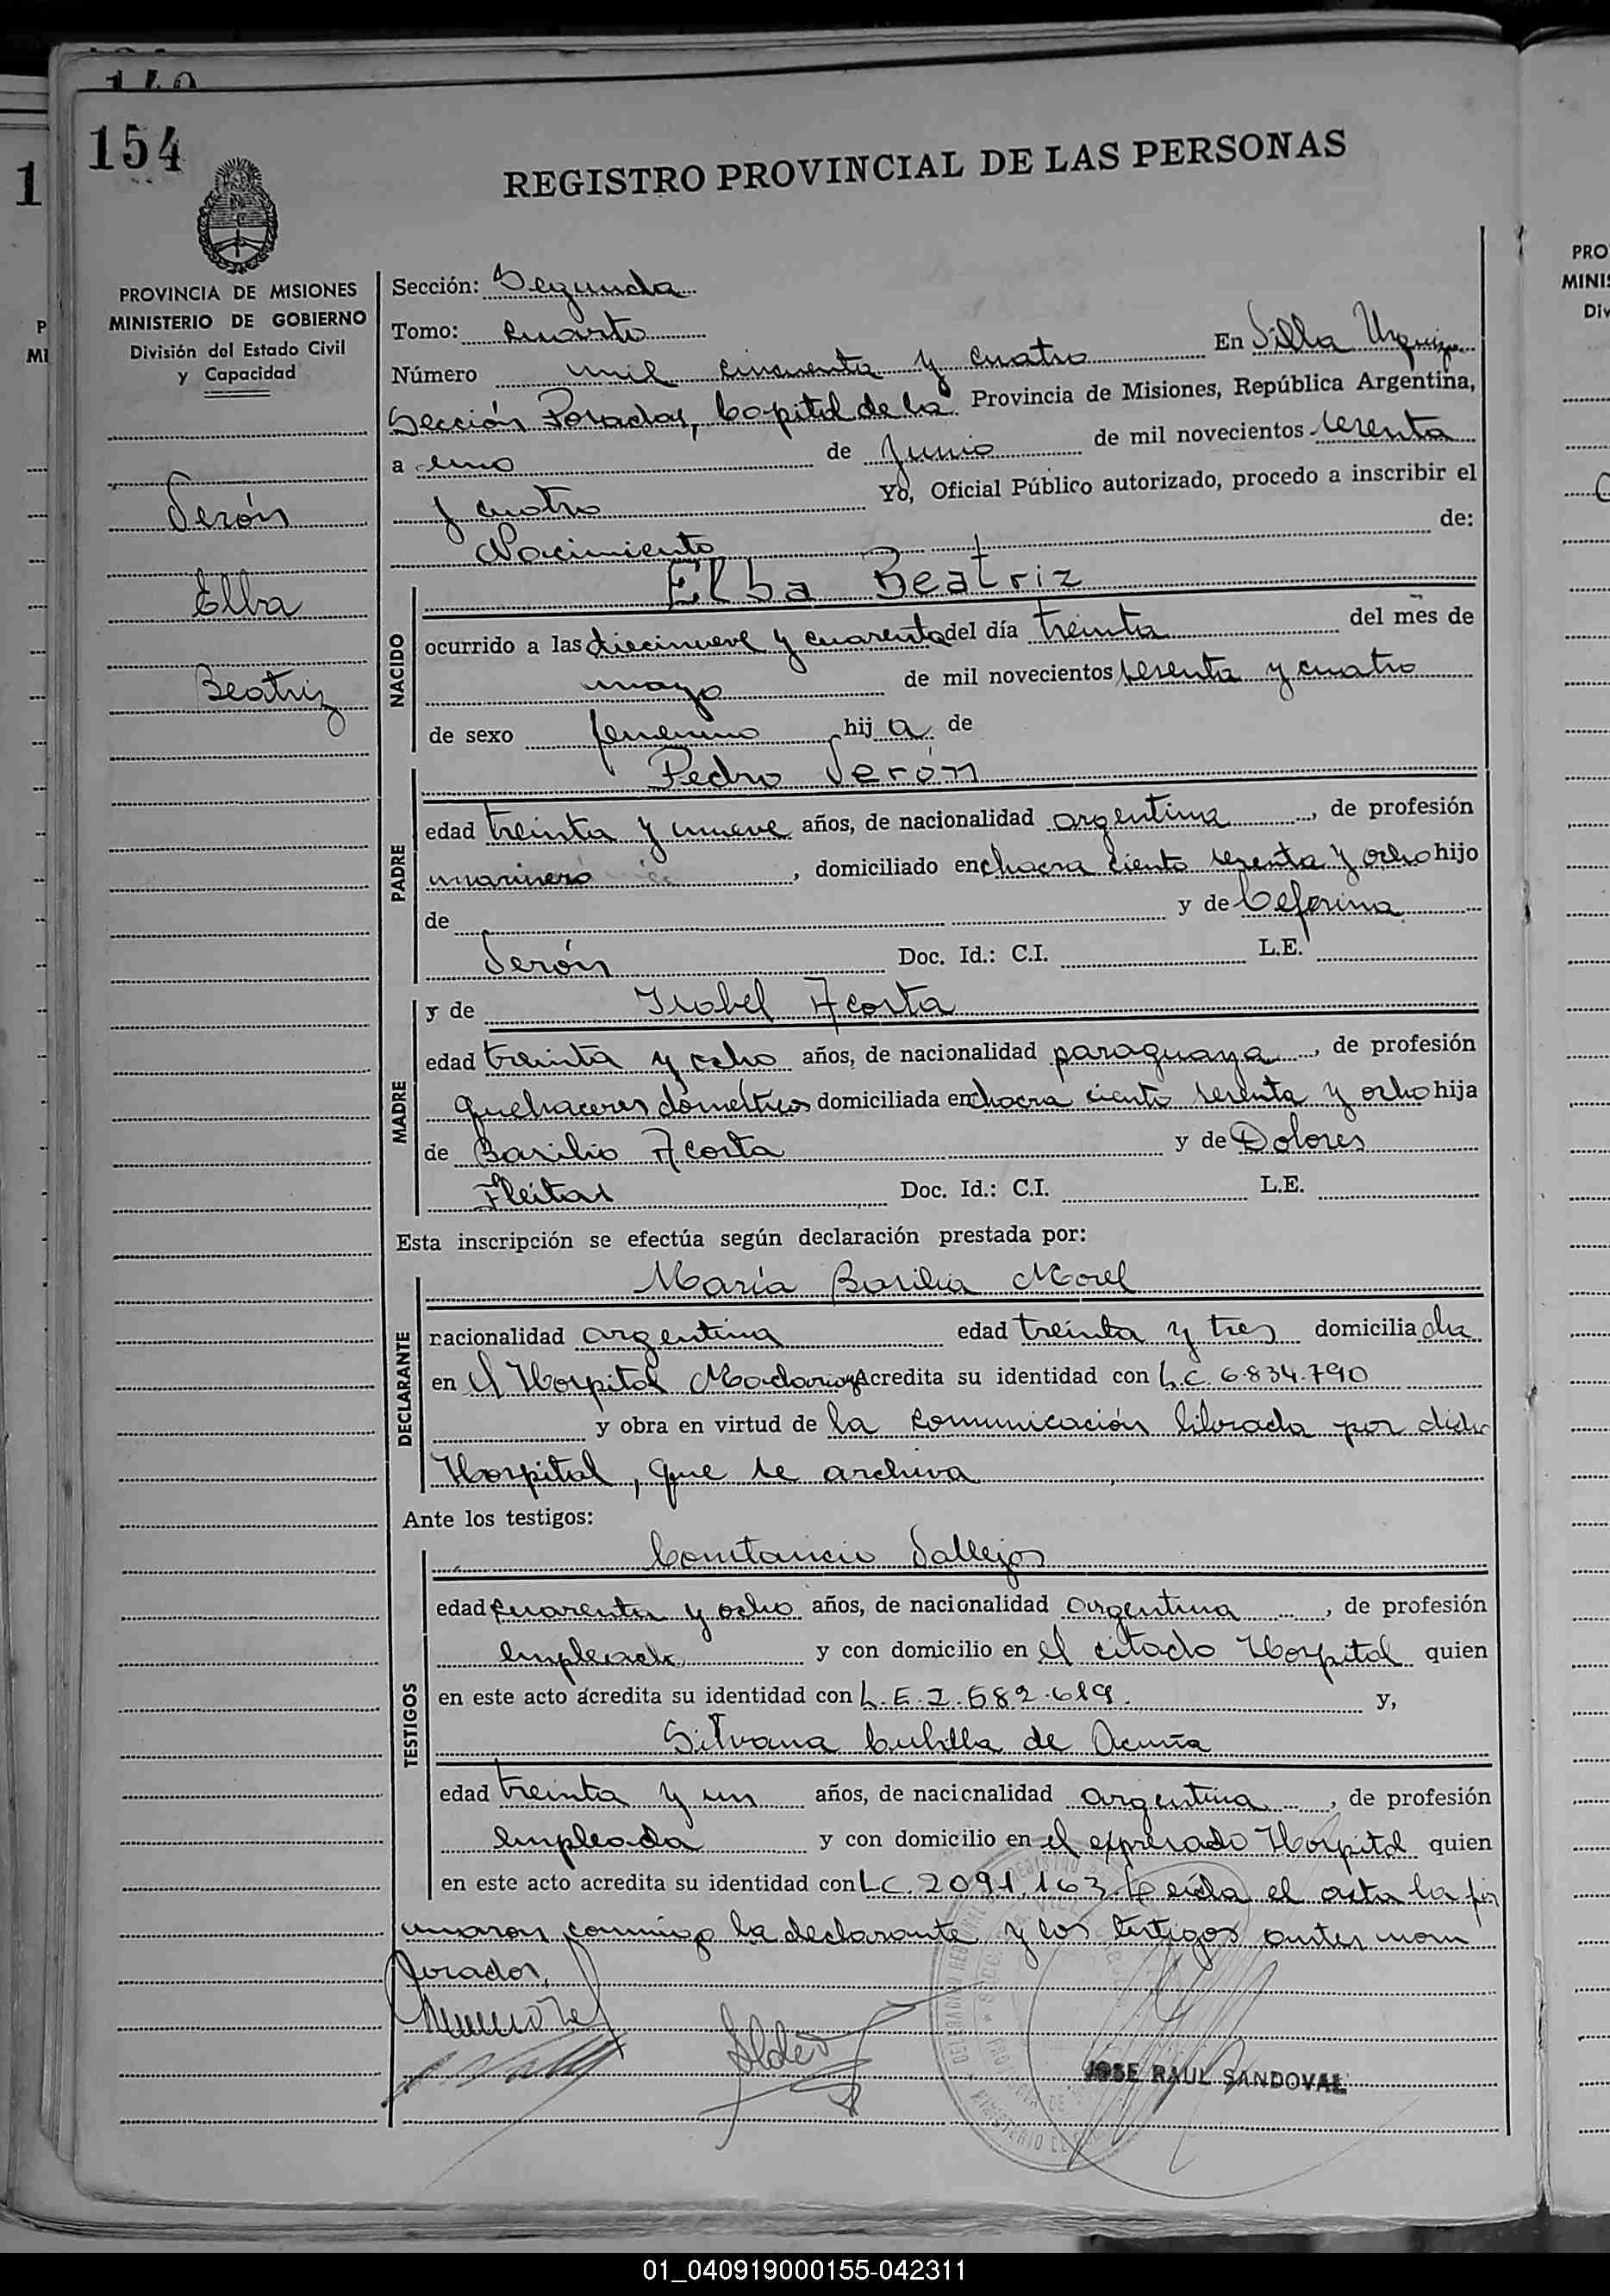 154
REGISTRO PROVINCIAL DE LAS PERSONAS
PROVINCIA DE MISIONES
MINISTERIO DE GOBIERNO
División del Estado Civil
y Capacidad
Verón
Elba
Beatriz
Sección: Segunda
Tomo: cuarto
Número mil cincuenta y cuatro En Villa Urquiza
Sección Posadas, Capital de la Provincia de Misiones, República Argentina,
a uno de Junio de mil novecientos sesenta
y cuatro Yo, Oficial Público autorizado, procedo a inscribir el
Nacimiento de:
NACIDO
Elba Beatriz
ocurrido a las diecinueve y cuarenta del día treinta del mes de
mayo de mil novecientos sesenta y cuatro
de sexo femenino hij a de
PADRE
Pedro Verón
edad treinta y nueve años, de nacionalidad argentina, de profesión
marinero, domiciliado en chacra ciento sesenta y ocho hijo
de y de Ceferina
Verón Doc. Id.: C.I. L.E.
MADRE
y de Isabel Acosta
edad treinta y ocho años, de nacionalidad paraguaya, de profesión
quehaceres domésticos domiciliada en chacra ciento sesenta y ocho hija
de Basilio Acosta y de Dolores
Fleitas Doc. Id.: C.I. L.E.
Esta inscripción se efectúa según declaración prestada por:
DECLARANTE
María Basilia Morel
nacionalidad argentina edad treinta y tres domicilia da
en el Hospital Madariaga Acredita su identidad con L.C. 6.834.790
y obra en virtud de la comunicación librada por dicho
Hospital, que se archiva
Ante los testigos:
TESTIGOS
Constancio Vallejos
edad cuarenta y ocho años, de nacionalidad argentina, de profesión
empleado y con domicilio en el citado Hospital quien
en este acto acredita su identidad con L.E. 2.582.619. y,
Silvana Cubilla de Acuña
edad treinta y un años, de nacionalidad argentina, de profesión
empleada y con domicilio en el expresado Hospital quien
en este acto acredita su identidad con L.C. 2091.163. Leida el acta la fir
maron conmigo la declarante y los testigos antes nom
brados.
JOSE RAUL SANDOVAL
01_040919000155-042311